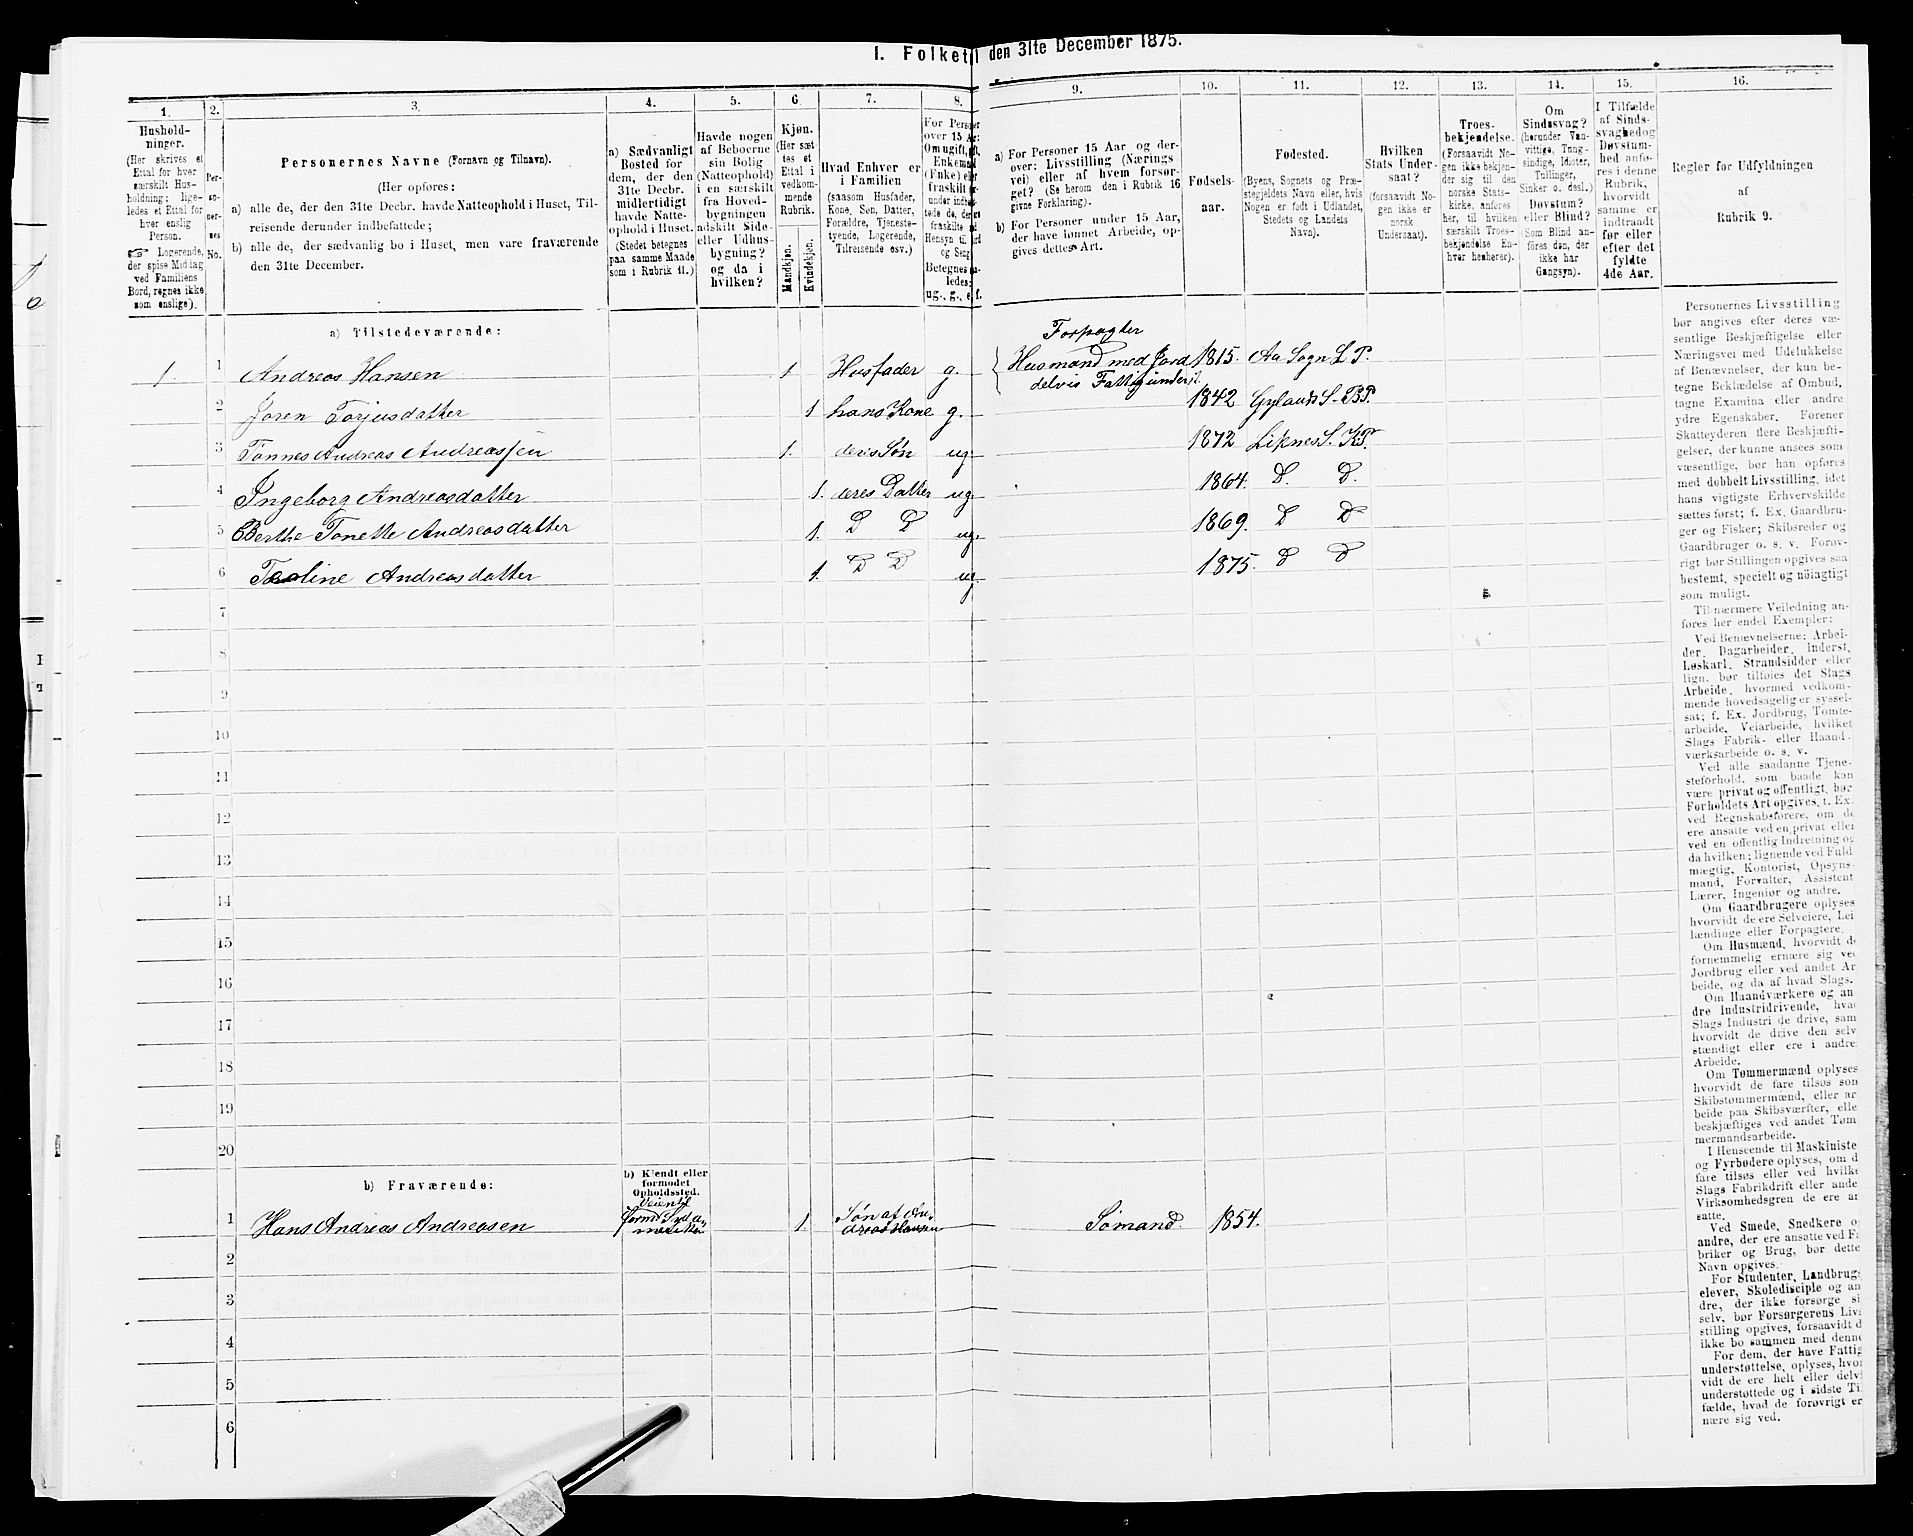 I. Folket
den 31te December 1875.
1.
2.
3.
4.
5.
6.
7.
8.
9.
10.
11.
12.
13.
14.
15.
16.
Hushold-
ninger.
(Her skrives et
Ettal for hver
særskilt Hus-
holdning; lige-
ledes et Ettal for
hver enslig
Person.
☞ Logerende,
der spise Middag
ved Familiens
Bord, regnes ikke
som enslige).
Per-
so-
ner-
nes
No.
Personernes Navne (Fornavn og Tilnavn).
(Her opføres:
a) alle de, der den 31te Decbr. havde Natteophold i Huset, Til-
reisende derunder indbefattede;
b) alle de, der sædvanlig bo i Huset, men vare fraværende
den 31te December.
a) Sædvanligt
Bosted for
dem, der den
31te Decbr.
midlertidigt
havde Natte-
ophold i Huset.
(Stedet betegnes
paa samme Maade
som i Rubrik 11.)
Havde nogen
af Beboerne
sin Bolig
(Natteophold)
i en særskilt
fra Hoved-
bygningen
adskilt Side-
eller Udhus-
bygning?
og da i
hvilken?
Kjøn.
(Her sæt-
tes et
Ettal i
vedkom-
mende
Rubrik.
Mandkjøn.
Kvindekjøn.
Hvad Enhver er
i Familien
(saasom Husfader,
Kone, Søn, Datter,
Forældre, Tjeneste-
tyende, Logerende,
Tilreisende osv.)
For Person
over 15 A
Om ugift,
Enkema
(Enke) el
fraskilt
under indbe-
tede de, der
fraskilte
Hensyn til
og Seng
Betegnes
ledes:
ug., g., e. f.
a) For Personer 15 Aar og der-
over: Livsstilling (Nærings-
vei) eller af hvem forsør-
get? (Se herom den i Rubrik 16
givne Forklaring).
b) For Personer under 15 Aar,
der have lønnet Arbeide, op-
gives dettes Art.
Fødsels-
aar.
Fødested.
(Byens, Sognets og Præ-
stegjeldets Navn eller, hvis
Nogen er født i Udlandet,
Stedets og Landets
Navn).
Hvilken
Stats Under-
saat?
(forsaavidt No-
gen ikke er
norsk
Undersaat).
Troes-
bekjendelse.
(Forsaavidt No-
gen ikke bekjen-
der sig til den
norske Stats-
kirke, anføres
her, til hvilken
særskilt Troes-
bekjendelse En-
hver henhører).
Om
Sindssvag?
(herunder Van-
vittige, Tung-
sindige, Idioter,
Tullinger,
Sinker o. desl.)
Døvstum?
eller Blind?
(Som Blind an-
føres den, der
ikke har
Gangsyn).
I Tilfælde
af Sinds-
svaghed og
Døvstum-
hed anfø-
res i denne
Rubrik,
hvorvidt
samme er
indtraadt
før eller
efter det
fyldte
4de Aar.
Regler for Udfyldningen
af
Rubrik 9.
a) Tilstedeværende:
Forpagter
1 1 Andreas Hansen 1 Husfader g. Husmand med Jord 1815. Aa Sogn L P.
delvis Fattigunderst.
2 Joren Torjusdatter 1 hans Kone g. 1842 Gylands S. B P.
3 Tønnes Andreas Andreassen 1. deres Søn ug. 1872 Liknes S. K P.
4 Ingeborg Andreasdatter 1. deres Datter ug. 1864. D. D.
5 Berthe Tonette Andreasdatter 1. D D ug. 1869. D D
6 Teoline Andreasdatter 1. D D ug. 1875. D D
7
8
9
10
11
12
13
14
15
16
17
18
19
20
b) Fraværende:
b) Kjendt eller
formodet
Opholdssted.
Veien til
form Syda-
merika
1 Hans Andreas Andreasen 1. Søn af An-
dreas Hansen Sømand 1854.
2
3
4
5
6
Personernes Livsstilling
bør angives efter deres væ-
sentlige Beskjæftigelse eller
Næringsvei med Udelukkelse
af Benævnelser, der kun be-
tegne Beklædelse af Ombud,
tagne Examina eller andre
ydre Egenskaber. Forener
Skatteyderen flere Beskjæfti-
gelser, der kunne ansees som
væsentlige, bør han opføres
med dobbelt Livsstilling, idet
hans vigtigste Erhvervskilde
sættes først; f. Ex. Gaardbru-
ger og Fisker; Skibsreder og
Gaardbruger o. s. v. Forøv-
rigt bør Stillingen opgives saa
bestemt, specielt og nöiagtigt
som muligt.
Til nærmere Veiledning an-
føres her endel Exempler:
Ved Benævnelserne: Arbei-
der, Dagarbeider, Inderst,
Løskarl, Strandsidder eller
lign. bør tilføies det Slags
Arbeide, hvormed vedkom-
mende hovedsagelig er syssel-
sat; f. Ex. Jordbrug, Tomte-
arbeide, Veiarbeide, hvilket
Slags Fabrik- eller Haand-
værksarbeide o. s. v.
Ved alle saadanne Tjene-
steforhold, som baade kan
være privat og offentligt, bør
Forholdets Art opgives, f. Ex.
ved Regnskabsførere, om de
ere ansatte ved en privat eller
ved en offentlig Indretning og
da hvilken; lignende ved Fuld-
mægtig, Kontorist, Opsyns-
mand, Forvalter, Assistent
Lærer, Ingeniør og andre.
Om Gaardbrugere oplyses
hvorvidt de ere Selveiere, Lei
lændinge eller Forpagtere.
Om Husmænd, hvorvidt de
fornemmelig ernære sig ved
Jordbrug eller ved andet Ar
beide, og da af hvad Slags.
Om Haandværkere og an
dre Industridrivende, hvad
Slags Industri de drive, sam
hvorvidt de drive den selv
stændigt eller ere i andre
Arbeide.
Om Tømmermænd oplyses
hvorvidt de fare tilsøs som
Skibstømmermænd, eller ar
beide paa Skibsværfter, elle
beskjæftiges ved andet Tøm
mermandsarbeide.
I Henseende til Maskiniste
og Fyrbødere oplyses, om d
fare tilsøs eller ved hvilke
Slags Fabrikdrift eller ande
Virksomhedsgren de ere an
satte.
Ved Smede, Snedkere o
andre, der ere ansatte ved Fa
briker og Brug, bør dette
Navn opgives.
For Studenter, Landbrugs
elever, Skoledisciple og an
dre, der ikke forsørge si
selv, bør Forsørgerens Livs
stilling opgives, forsaavidt d
ikke bo sammen med denne
For dem, der have Fattig
understøttelse, oplyses, hvor
vidt de ere helt eller delvi
understøttede og i sidste Til
fælde, hvad de forøvrigt er
nære sig ved.